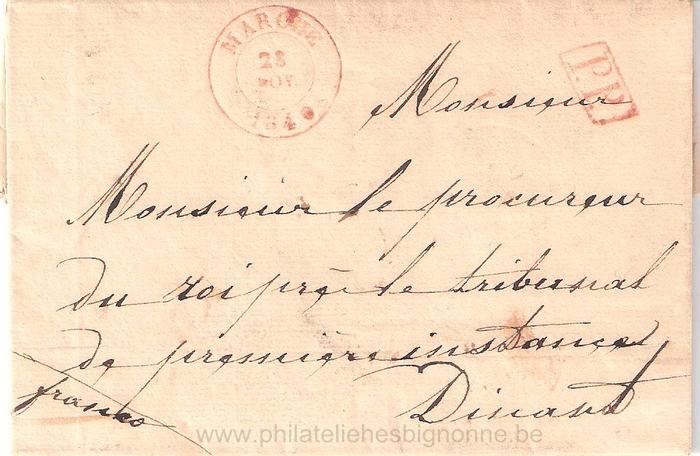 MARCHE
28
NOV
1840
P.P.
Monsieur
Monsieur le procureur
du roi prés le tribunal
de premiére instance
Dinant
franco
www.philateliehesbignonne.be